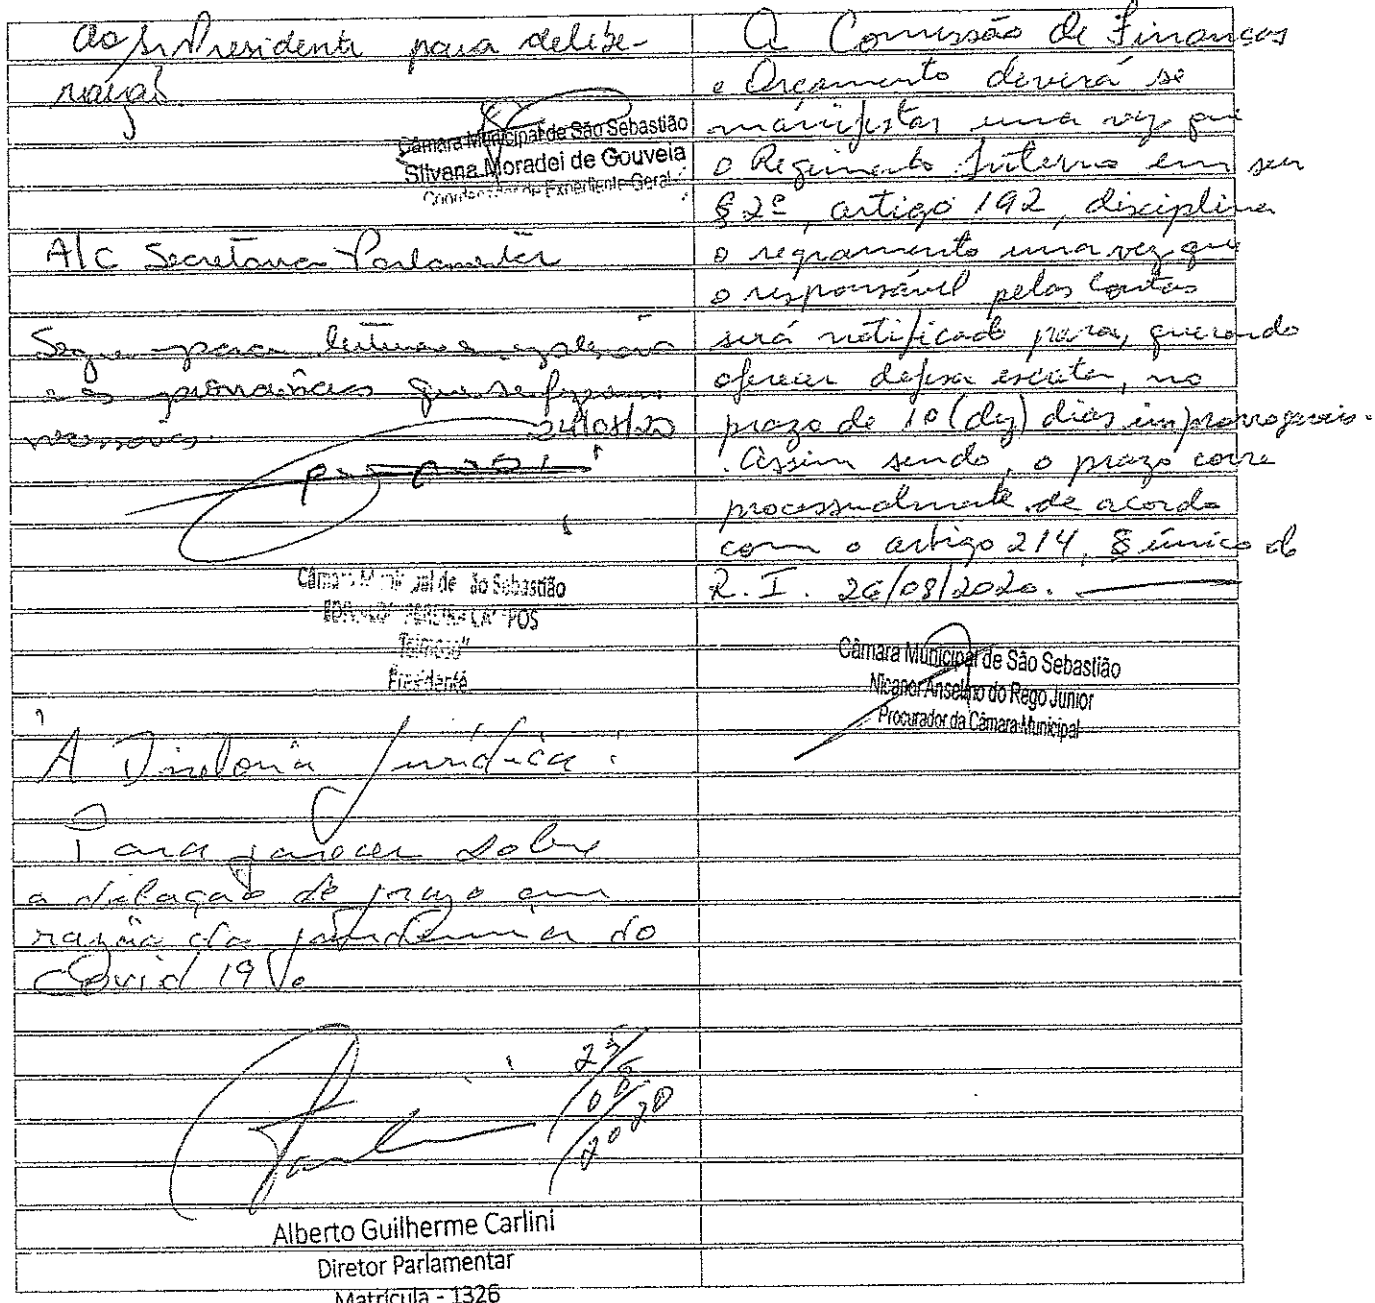 Ao Sr Presidente para delibe-
ração.
Câmara Municipal de São Sebastião
Silvana Moradei de Gouveia
Coordenador de Expediente Geral
A/C Secretaria Parlamentar
Segue para leitura e
e as providências que se façam
necessárias.
24/08/20
Câmara Municipal de São Sebastião
"Teimoso"
Presidente
À Diretoria Jurídica:
Para parecer sobre
a dilação de prazo em
razão da pandemia do
Covid 19.
25/08/2020
Alberto Guilherme Carlini
Diretor Parlamentar
Matrícula - 1326
A Comissão de Finanças
e Orçamento deverá se
manifestar uma vez que
o Regimento Interno em seu
§ 2º, artigo 192, disciplina
o regramento uma vez que
o responsável pelas contas
será notificado para, querendo
oferecer defesa escrita, no
prazo de 10 (dez) dias improrrogáveis.
Assim sendo, o prazo corre
processualmente de acordo
com o artigo 214, § único do
R. I. 26/08/2020.
Câmara Municipal de São Sebastião
Nicanor Anselmo do Rego Junior
Procurador da Câmara Municipal